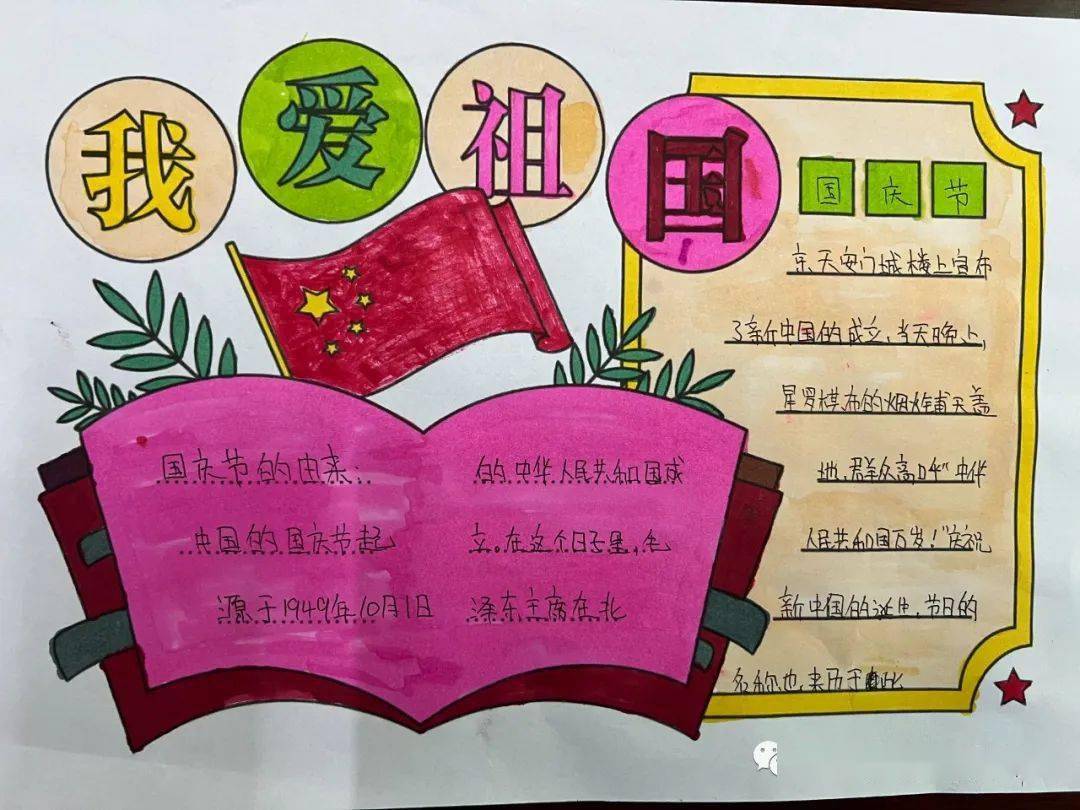 我爱祖国
国庆节的由来:
中国的国庆节起
源于1949年10月1日
的中华人民共和国成
立。在这个日子里,毛
泽东主席在北
国庆节
京天安门城楼上宣布
了新中国的成立,当天晚上,
星罗棋布的烟炸铺天盖
地,群众高呼“中华
人民共和国万岁!”庆祝
新中国的诞生,节日的
名称也来历于此